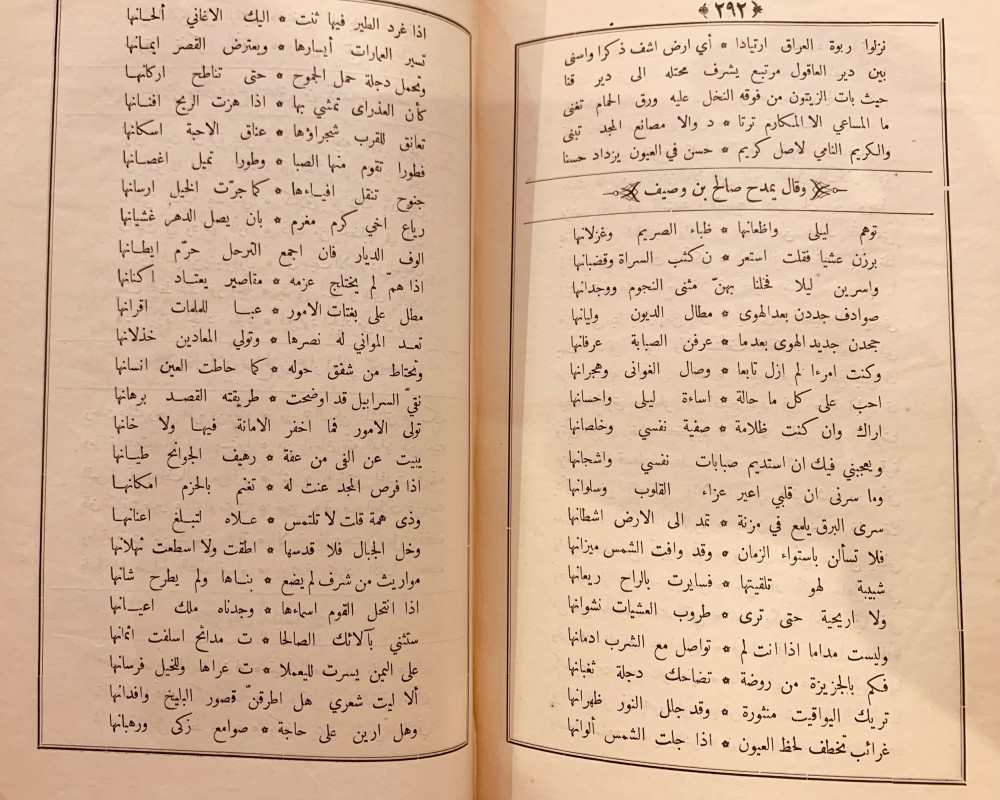 ﴿٢٩٢﴾
نزلوا ربوة العراق ارتيادا * أي ارض اشف ذكرا واسنى
بين دير العاقول مرتبع يشرف محتله الى دير قنا
حيث بات الزيتون من فوقه النخل عليه ورق الحمام تغنى
ما المساعي الا المكارم ترتا * د والا مصانع المجد تبنى
والكريم النامي لاصل كريم * حسن في العيون يزداد حسنا
وقال يمدح صالح بن وصيف
توهم ليلى واظعانها * ظباء الصريم وغزلانها
برزن عشيا فقلت استعر * ن كثب السراة وقضبانها
واسرين ليلا فخلنا بهنّ مثنى النجوم ووحدانها
صوادف جددن بعد الهوى * مطال الديون وليانها
جحدن جديد الهوى بعدما * عرفن الصبابة عرفانها
وكنت امرءا لم ازل تابعا * وصال الغوانى وهجرانها
احب على كل ما حالة * اساءة ليلى واحسانها
اراك وان كنت ظلامة * صفية نفسي وخلصانها
ويعجبني فيك ان استديم صبابات نفسي واشجانها
وما سرنى ان قلبي اعير عزاء القلوب وسلوانها
سرى البرق يلمع في مزنة * تمد الى الارض اشطانها
فلا تسألن باستواء الزمان * وقد وافت الشمس ميزانها
شبيبة لهو تلقيتها * فسايرت بالراح ريعانها
ولا اريحية حتى ترى * طروب العشيات نشوانها
وليست مداما اذا انت لم * تواصل مع الشرب ادمانها
فكم بالجزيزة من روضة * تضاحك دجلة ثغبانها
تريك اليواقيت منثورة * وقد جلل النور ظهرانها
غرائب تخطف لحظ العيون * اذا جلت الشمس ألوانها
اذا غرد الطير فيها ثنت * اليك الاغاني ألحانها
تسير العمارات أيسارها * ويعترض القصر ايمانها
وتحمل دجلة حمل الجموح * حتى تناطح اركانها
كأن العذراى تمشي بها * اذا هزت الريح افنانها
تعانق للقرب شجراؤها * عناق الاحبة اسكانها
فطورا تقوم منها الصبا * وطورا تميل اغصانها
جنوح تنقل افياءها * كما جرّت الخيل ارسانها
رباع اخي كرم مغرم * بان يصل الدهر غشيانها
الوف الديار فان اجمع الترحل حرّم ايطانها
اذا همّ لم يختلج عزمه * مقاصير يعتاد اكنانها
مطل على بغتات الامور * عبا للملمات اقرانها
تعد المواني له نصرها * وتولي المعادين خذلانها
وتحتاط من شفق حوله * كما حاطت العين انسانها
نقيّ السرابيل قد اوضحت * طريقته القصد برهانها
تولى الامور فما اخفر الامانة فيها ولا خانها
يبيت عن الفى من عفة * رهيف الجوانح طيانها
اذا فرص المجد عنت له * تغنم بالحزم امكانها
وذى همة قلت لا تلتمس * علاه لتبلغ اعنانها
وخل الجبال فلا قدسها * اطقت ولا اسطعت ثهلانها
مواريث من شرف لم يضع * بناها ولم يطرح شانها
اذا انتحل القوم اسماءها * وجدناه ملك اعيانها
ستثني بآلائك الصالحا * ت مدائح اسلفت اثمانها
على اليمن يسرت لليعملا * ت عراها وللخيل فرسانها
ألا ليت شعري هل اطرقنّ قصور البليخ وافدانها
وهل ارين على حاجة * صوامع زكى ورهبانها